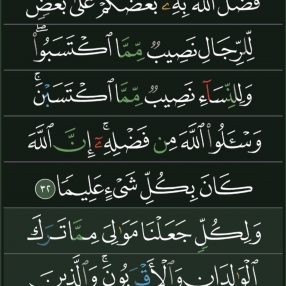 فَضَّلَ ٱللَّهُ بِهِۦ بَعۡضَكُمۡ عَلَىٰ بَعۡضٖۚ
لِّلرِّجَالِ نَصِيبٞ مِّمَّا ٱكۡتَسَبُواْۖ
وَلِلنِّسَآءِ نَصِيبٞ مِّمَّا ٱكۡتَسَبۡنَۚ
وَسۡـَٔلُواْ ٱللَّهَ مِن فَضۡلِهِۦٓۚ إِنَّ ٱللَّهَ
كَانَ بِكُلِّ شَيۡءٍ عَلِيمٗا ٣٢
وَلِكُلّٖ جَعَلۡنَا مَوَٰلِيَ مِمَّا تَرَكَ
ٱلۡوَٰلِدَانِ وَٱلۡأَقۡرَبُونَۚ وَٱلَّذِينَ